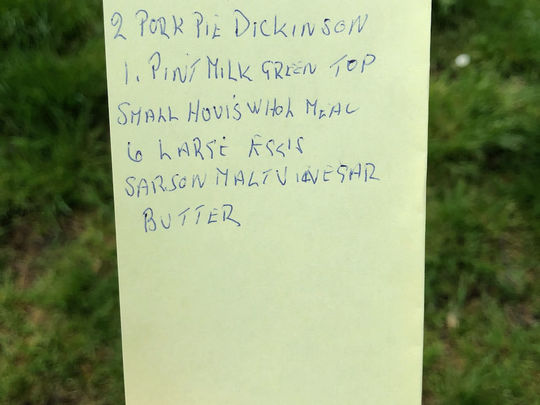 2 PORK PIE DICKINSON
1. PINT MILK GREEN TOP
SMALL HOVIS WHOL MEAL
6 LARGE EGGS
SARSON MALT VINEGAR
BUTTER